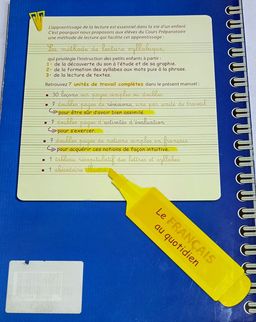 L'apprentissage de la lecture est essentiel dans la vie d'un enfant
C'est pourquoi nous proposons aux élèves du Cours Préparatoire
une méthode de lecture qui facilite cet apprentissage :
La méthode de lecture syllabique,
qui privilégie l'instruction des petits enfants à partir :
1 - de la découverte du son à l'étude et de sa graphie.
2 - de la formation des syllabes aux mots puis à la phrase.
3 - de la lecture de textes.
Retrouvez 7 unités de travail complètes dans le présent manuel :
• 30 leçons sur pages simples ou doubles
• 7 doubles pages de révisions, une par unité de travail
pour être sûr d'avoir bien assimilé.
• 7 doubles pages d'activités d'évaluation
pour s'exercer.
• 7 doubles pages de notions simples en français
pour acquérir ces notions de façon intuitive.
• 1 tableau récapitulatif des lettres et syllabes
• 1 abécédaire
Le FRANÇAIS
au quotidien